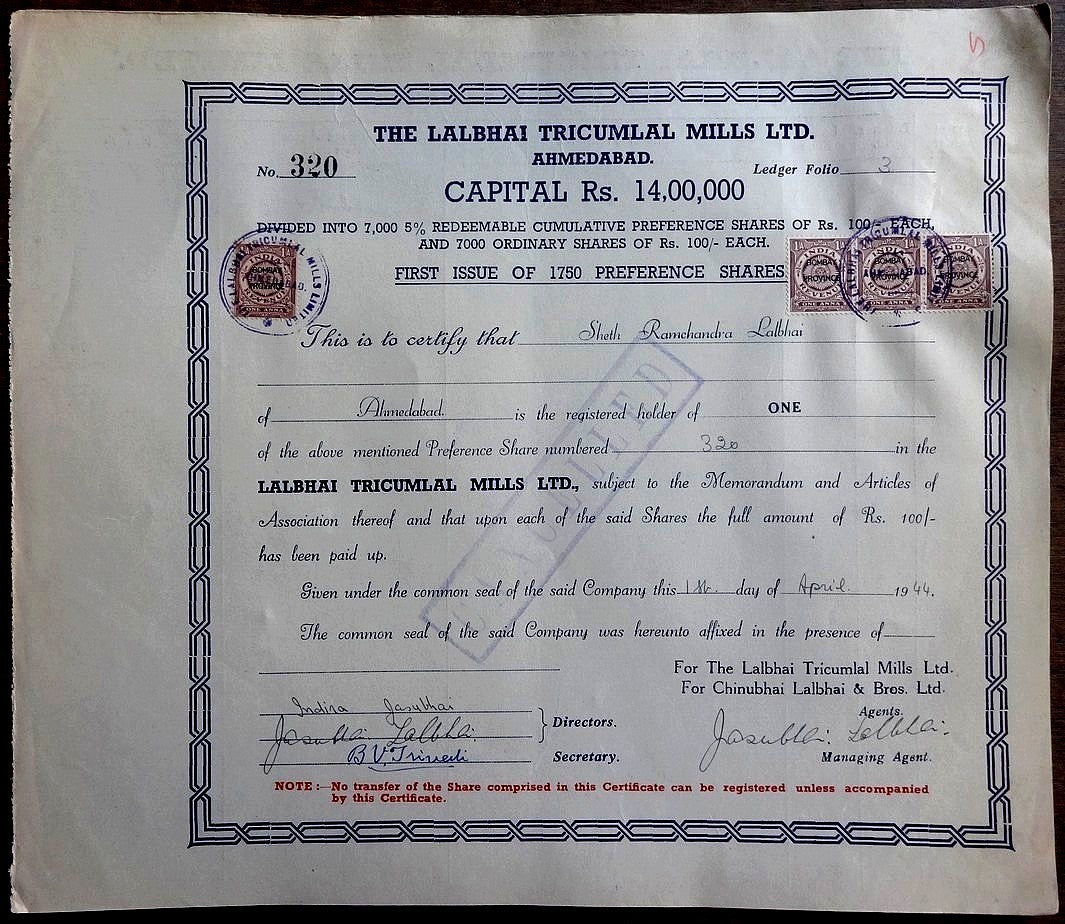 5
THE LALBHAI TRICUMLAL MILLS LTD.
AHMEDABAD.
No. 320
Ledger Folio 3
CAPITAL Rs. 14,00,000
DIVIDED INTO 7,000 5% REDEEMABLE CUMULATIVE PREFERENCE SHARES OF Rs. 100/- EACH,
AND 7000 ORDINARY SHARES OF Rs. 100/- EACH.
FIRST ISSUE OF 1750 PREFERENCE SHARES
INDIA BOMBAY PROVINCE REVENUE ONE ANNA
LALBHAI TRICUMLAL MILLS LIMITED
1A INDIA 1A BOMBAY PROVINCE REVENUE ONE ANNA
1A INDIA 1A BOMBAY PROVINCE REVENUE ONE ANNA
1A BOMBAY PROVINCE REVENUE ONE ANNA
This is to certify that Sheth Ramchandra Lalbhai
of Ahmedabad. is the registered holder of ONE
of the above mentioned Preference Share numbered 320 in the
LALBHAI TRICUMLAL MILLS LTD., subject to the Memorandum and Articles of
Association thereof and that upon each of the said Shares the full amount of Rs. 100/-
has been paid up.
CANCELLED
Given under the common seal of the said Company this 1st. day of April. 1944.
The common seal of the said Company was hereunto affixed in the presence of
For The Lalbhai Tricumlal Mills Ltd.
For Chinubhai Lalbhai & Bros. Ltd.
Agents.
Indira Jasubhai
Jasubhai Lalbhai. Directors.
Jasubhai Lalbhai.
B. V. Trivedi Secretary.
Managing Agent.
NOTE :—No transfer of the Share comprised in this Certificate can be registered unless accompanied
by this Certificate.